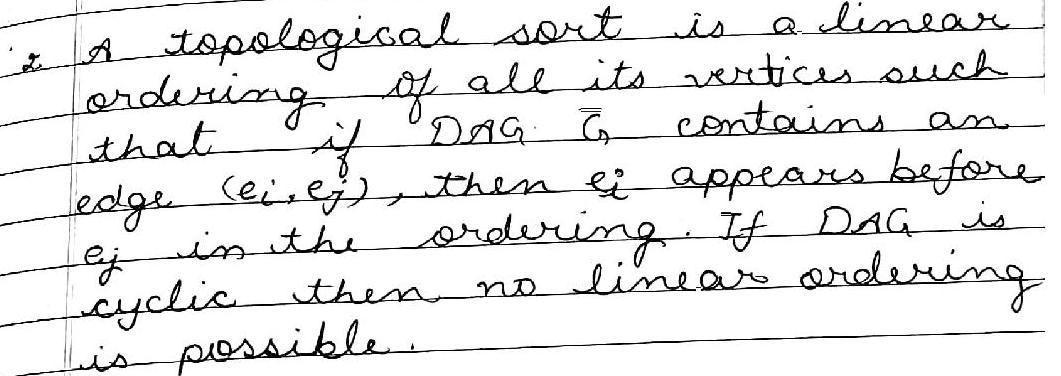 2 A topological sort is a linear
ordering of all its vertices such
that if DAG G contains an
edge (ei, ej), then ei appears before
ej in the ordering. If DAG is
cyclic then no linear ordering
is possible.